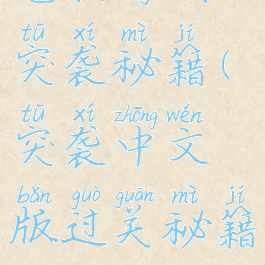 tū xí mì jí
突袭秘籍(
tū xí zhōng wén
突袭中文
bǎn guò guān mì jí
版过关秘籍